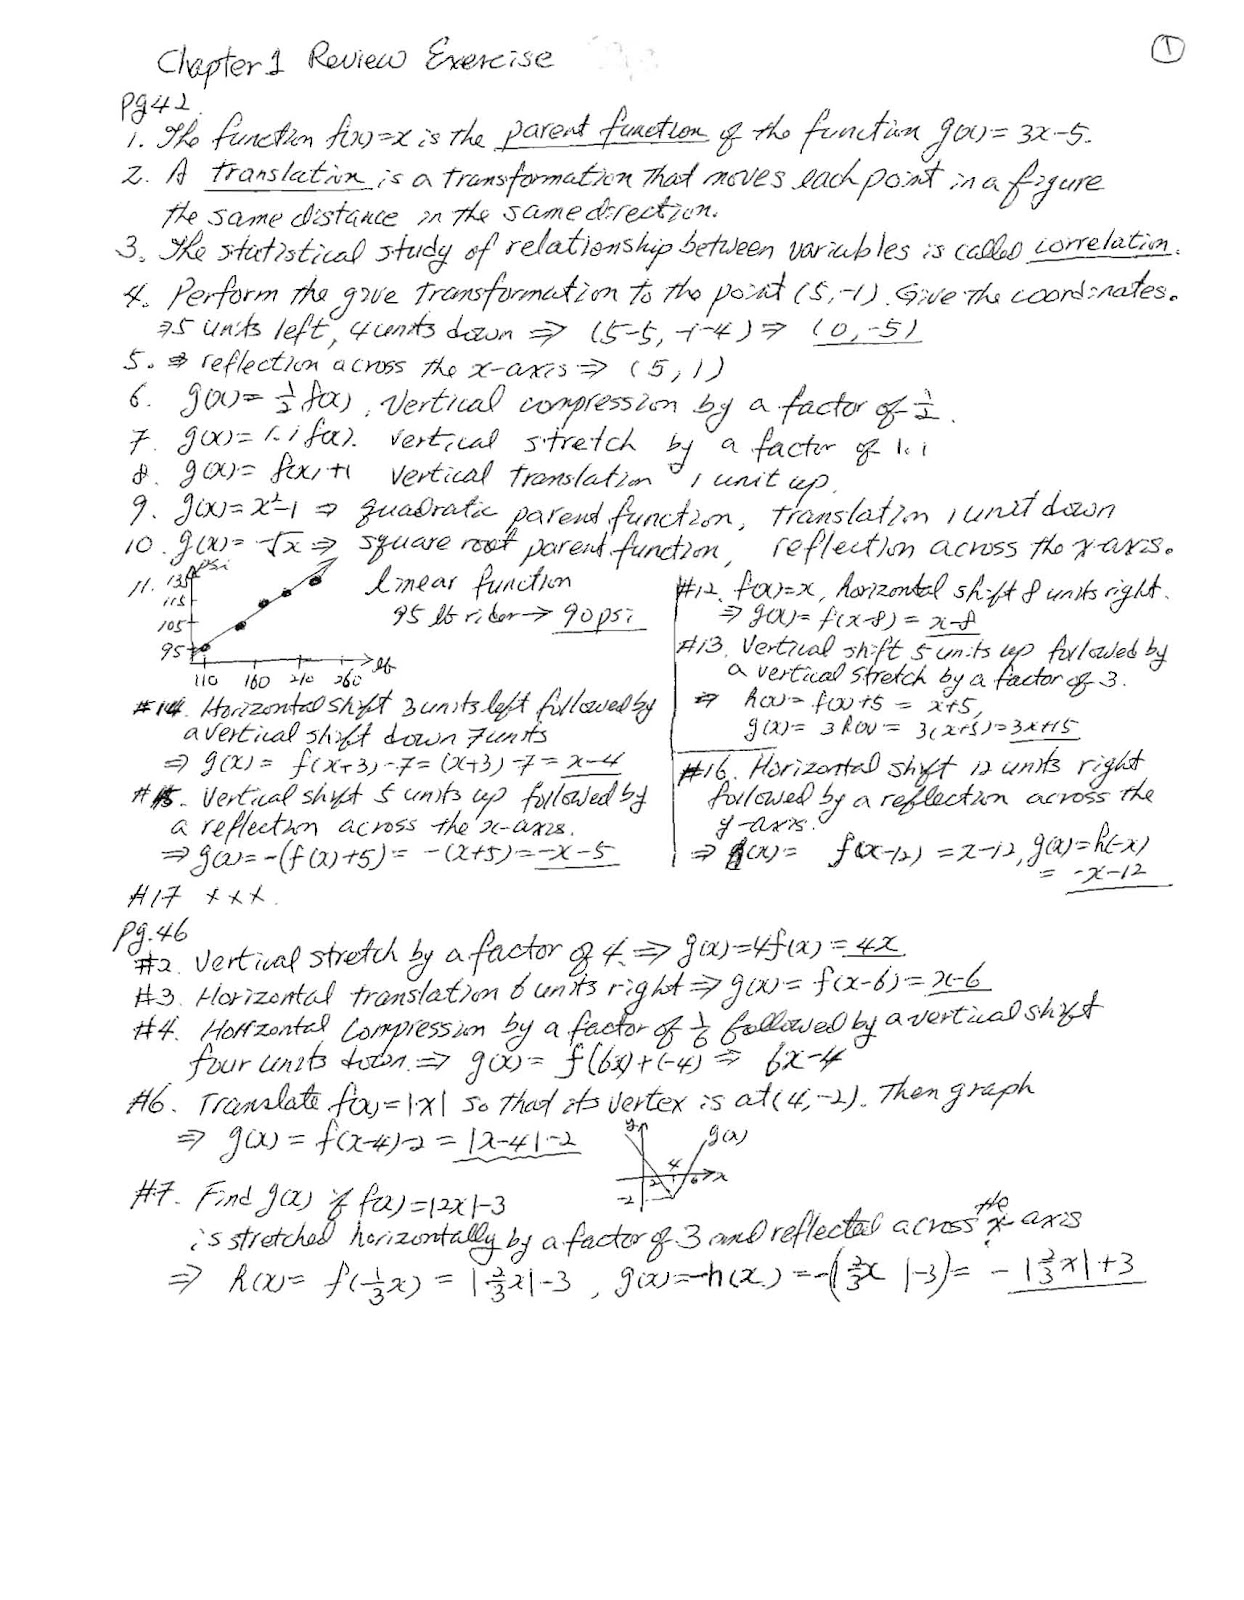 Chapter 1 Review Exercise
①
pg42.
1. The function f(x)=x is the parent function of the function g(x)= 3x-5.
2. A translation is a transformation that moves each point in a figure
the same distance in the same direction.
3. The statistical study of relationship between variables is called correlation.
4. Perform the give transformation to the point (5,-1). Give the coordinates.
⇒5 units left, 4 units down ⇒ (5-5, -1-4) ⇒ (0,-5)
5. ⇒ reflection across the x-axis ⇒ (5,1)
6. g(x)= ½ f(x), Vertical compression by a factor of ½.
7. g(x)= 1.1 f(x). vertical stretch by a factor of 1.1
8. g(x)= f(x)+1 vertical translation 1 unit up.
9. g(x)=x²-1 ⇒ quadratic parent function, translation 1 unit down
10. g(x)= -√x ⇒ square root parent function, reflection across the x-axis.
11. psi
135
115
105
95
110 160 210 260 lb
linear function
95 lb rider → 90 psi
#12. f(x)=x, horizontal shift 8 units right.
⇒ g(x)= f(x-8) = x-8
#13. Vertical shift 5 units up followed by
a vertical stretch by a factor of 3.
⇒ h(x)= f(x)+5 = x+5,
g(x)= 3h(x)= 3(x+5)=3x+15
#14. Horizontal shift 3 units left followed by
a vertical shift down 7 units
⇒ g(x)= f(x+3)-7= (x+3)-7= x-4
#15. Vertical shift 5 units up followed by
a reflection across the x-axis.
⇒ g(x)= -(f(x)+5)= -(x+5)= -x-5
#16. Horizontal shift 12 units right
followed by a reflection across the
y-axis.
⇒ h(x)= f(x-12) = x-12, g(x)=h(-x)
= -x-12
#17 ***.
pg.46
#2. Vertical stretch by a factor of 4. ⇒ g(x)=4f(x)=4x
#3. Horizontal translation 6 units right ⇒ g(x)= f(x-6)= x-6
#4. Horizontal compression by a factor of 1/6 followed by a vertical shift
four units down. ⇒ g(x)= f(6x)+(-4) ⇒ 6x-4
#6. Translate f(x)=|x| so that its vertex is at (4,-2). Then graph
⇒ g(x) = f(x-4)-2 = |x-4|-2
y g(x)
2 4 6 x
-2
#7. Find g(x) if f(x)=|2x|-3
is stretched horizontally by a factor of 3 and reflected across the x-axis
⇒ h(x)= f(⅓x) = |⅔x|-3, g(x)=-h(x)=-(|⅔x|-3)= -|⅔x|+3